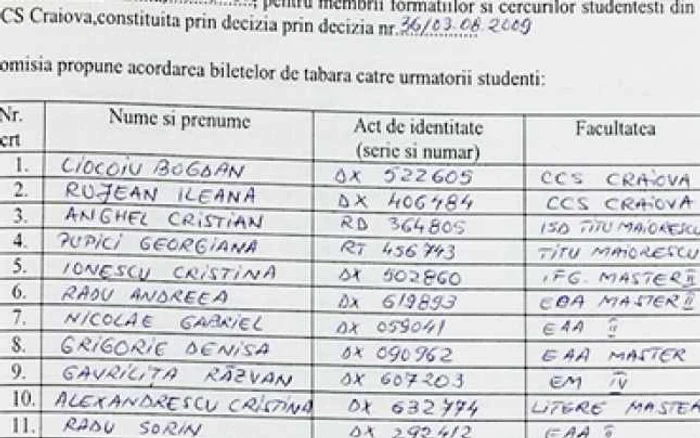 pentru membrii formatiilor si cercurilor studentesti din
CS Craiova,constituita prin decizia prin decizia nr. 36/03.08.2009
omisia propune acordarea biletelor de tabara catre urmatorii studenti:
Nr. crt Nume si prenume Act de identitate (serie si numar) Facultatea
1. CIOCOIU BOGDAN DX 522605 CCS CRAIOVA
2. RUJEAN ILEANA DX 406484 CCS CRAIOVA
3. ANGHEL CRISTIAN RD 364805 ISD TITU MAIORESCU
4. PUPICI GEORGIANA RT 456743 TITU MAIORESCU
5. IONESCU CRISTINA DX 502860 IFG. MASTER II
6. RADU ANDREEA DX 619893 EBA MASTER II
7. NICOLAE GABRIEL DX 059041 EAA II
8. GRIGORIE DENISA DX 090962 EAA MASTER
9. GAVRILIȚA RĂZVAN DX 607203 EM IV
10. ALEXANDRESCU CRISTINA DX 632774 LITERE MASTER
11. RADU SORIN DX 292412 EAA